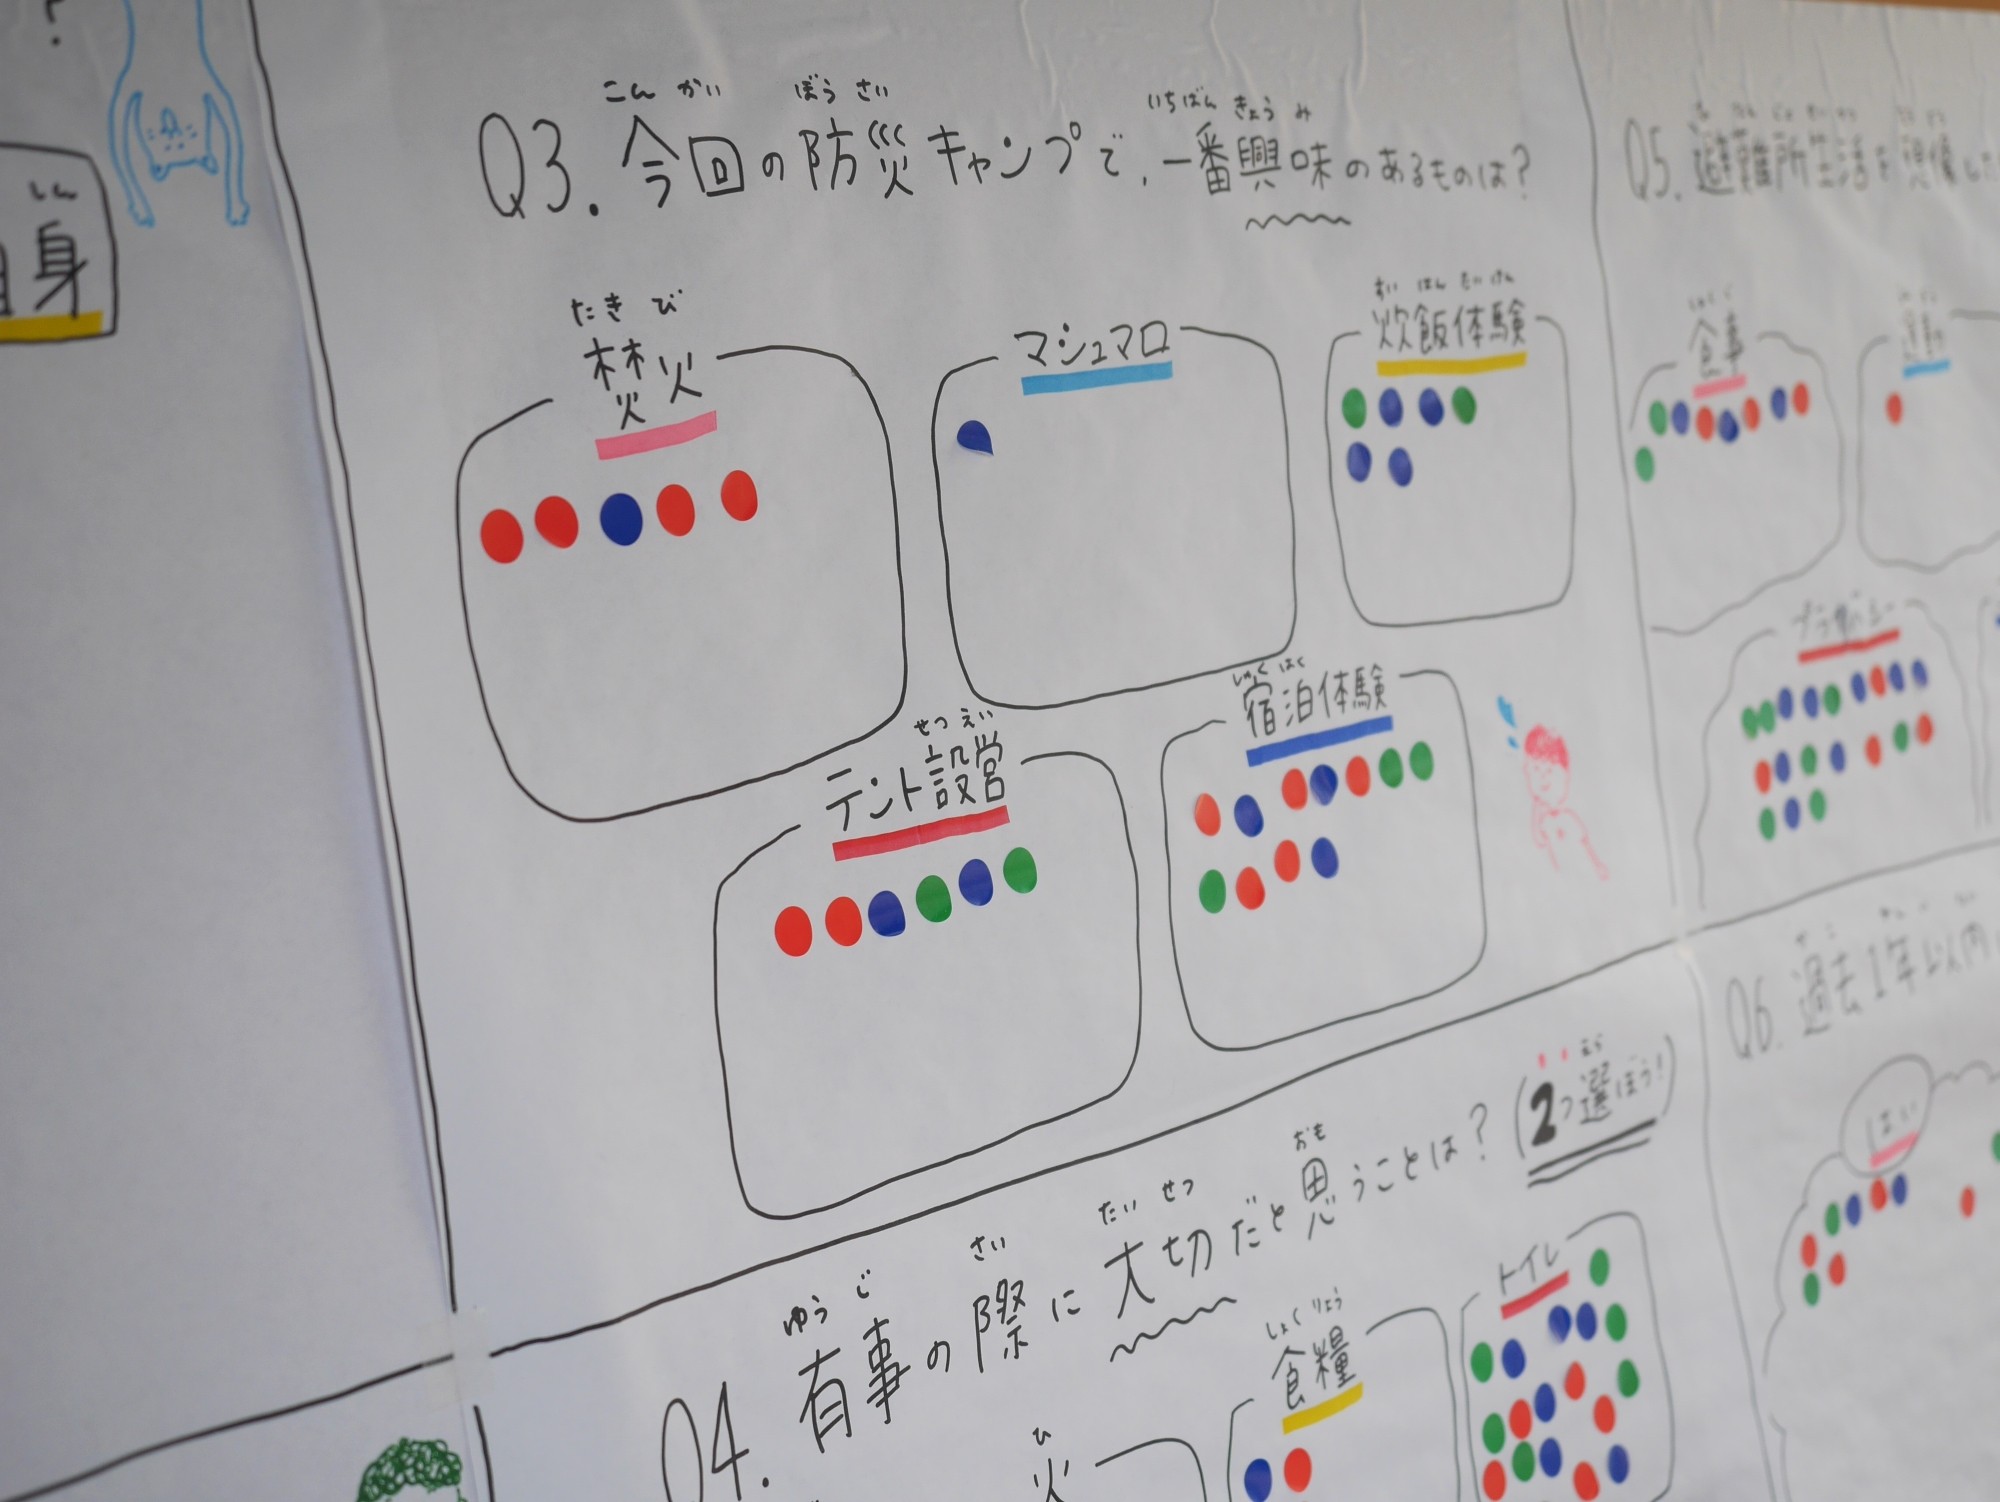 ?
しん
身
こんかい ぼうさい いちばん きょうみ
Q3. 今回の防災キャンプで、一番興味のあるものは?
たきび
焚火
マシュマロ
すいはんたいけん
炊飯体験
せつえい
テント設営
しゅくはく
宿泊体験
ゆうじ さい たいせつ おも
Q4. 有事の際に大切だと思うことは?
えら
(2つ選ぼう!)
ひ
火
しょくりょう
食糧
トイレ
Q5. 避難所生活を
食事
プライバシー
Q6. 過去1年以内
はい